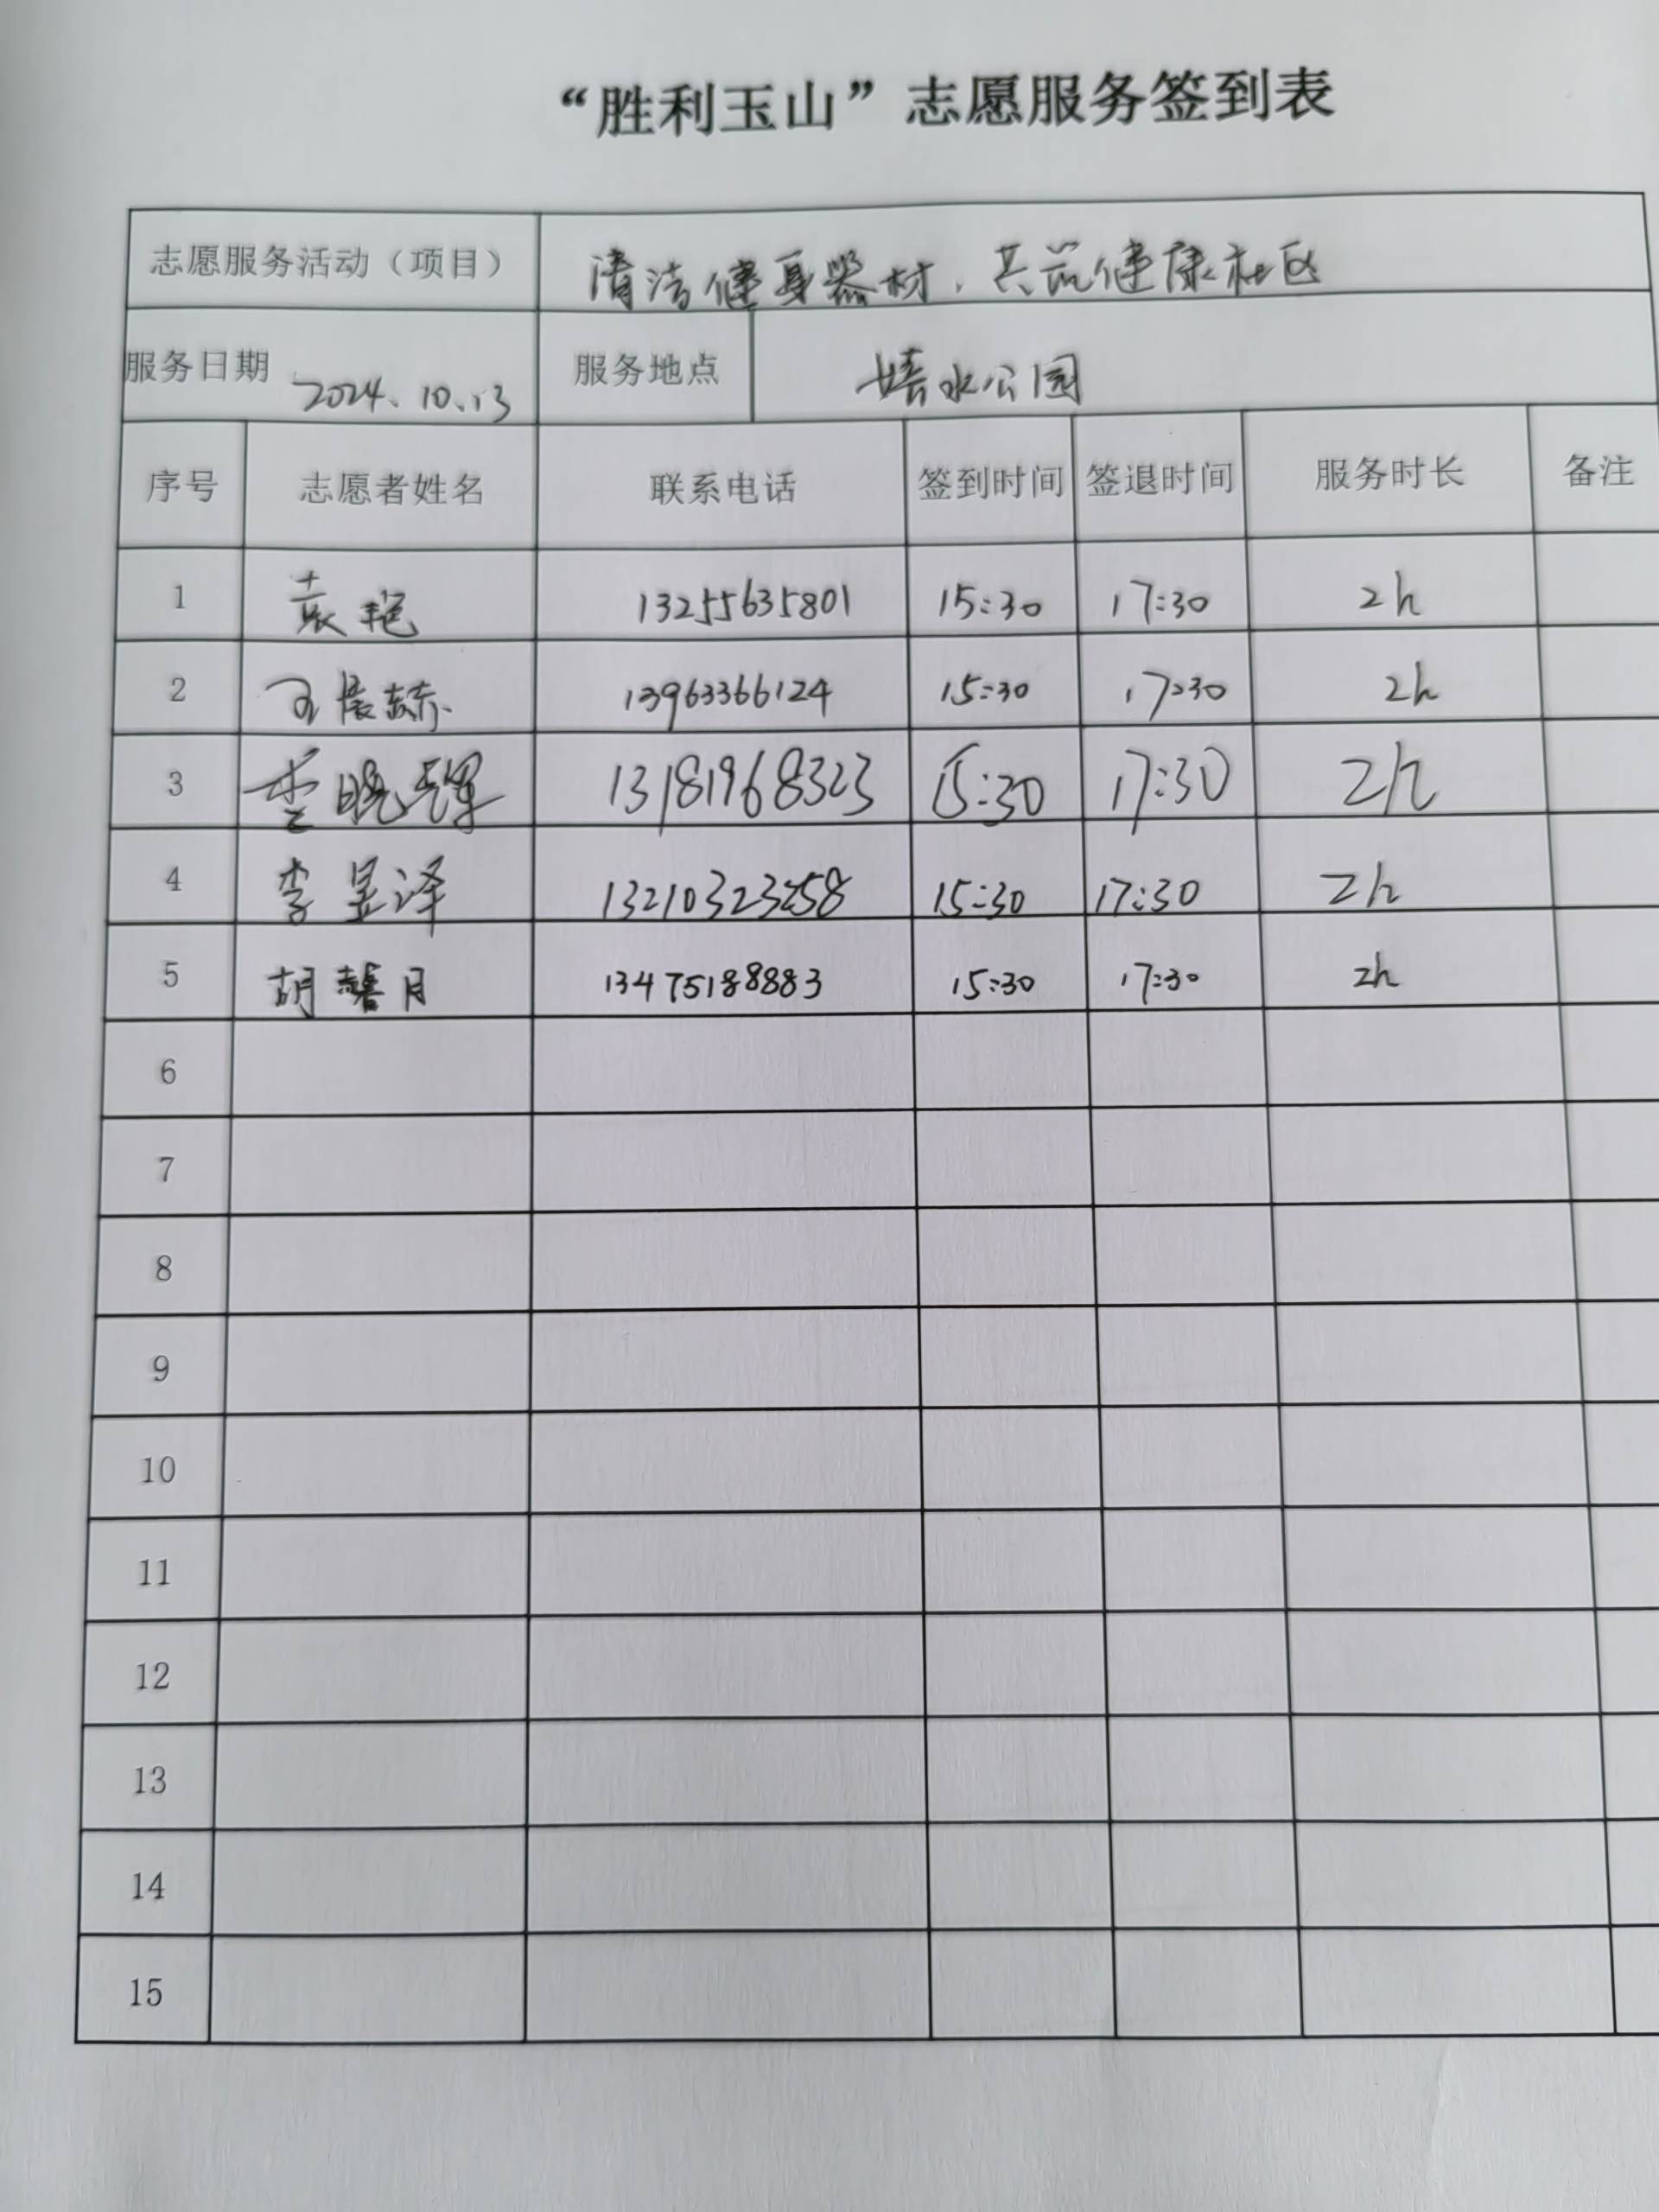 “胜利玉山”志愿服务签到表
志愿服务活动（项目） 清洁健身器材，共筑健康社区
服务日期 2024.10.13 服务地点 公园
序号 志愿者姓名 联系电话 签到时间 签退时间 服务时长 备注
1 袁艳 13255635801 15:30 17:30 2h
2 13963366124 15:30 17:30 2h
3 李晓辉 13181968323 15:30 17:30 2h
4 李昱泽 13210323258 15:30 17:30 2h
5 胡馨月 13475188883 15:30 17:30 2h
6
7
8
9
10
11
12
13
14
15